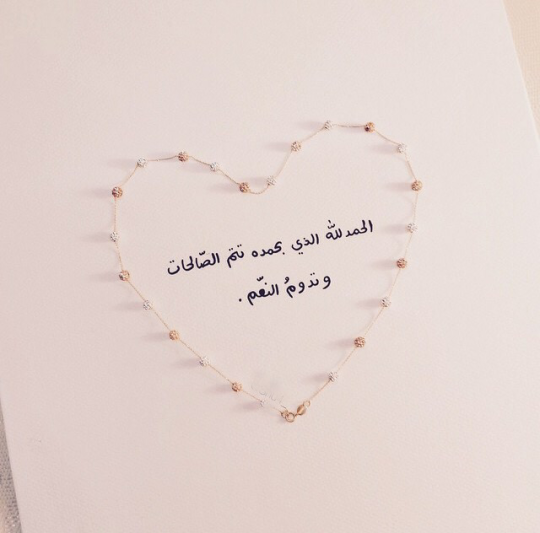 الحمدلله الذي بحمده تتم الصّالحات
وتدومُ النعّم .